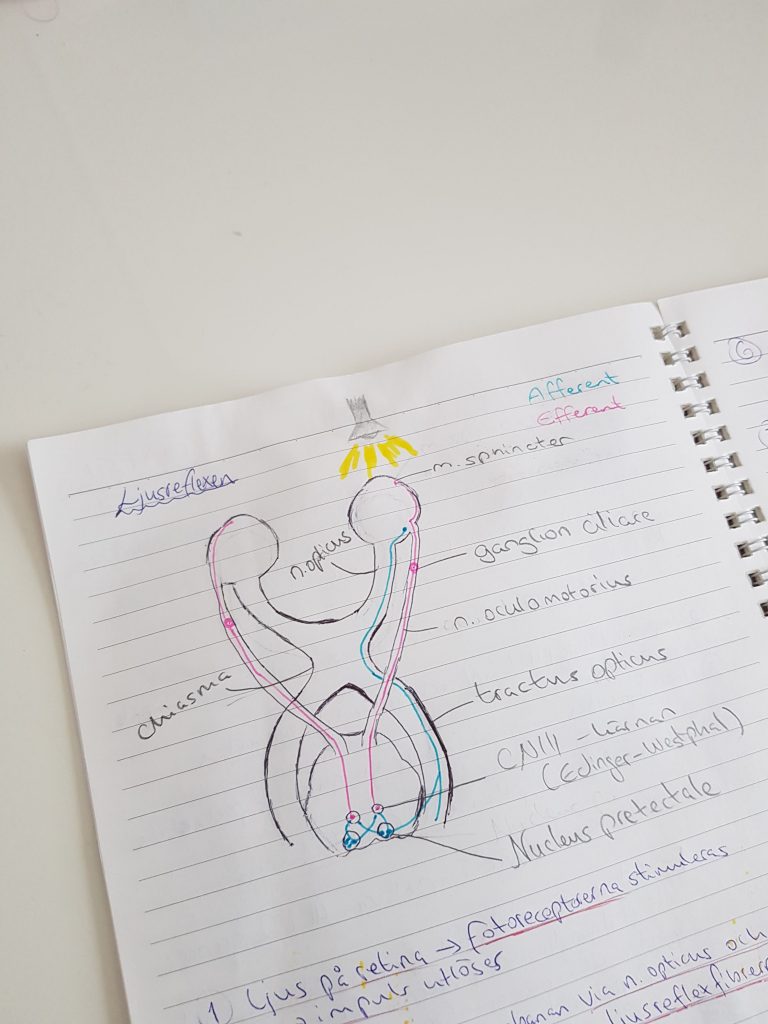 Afferent
Efferent
Ljusreflexen
m. sphincter
n. opticus
ganglion ciliare
n. oculomotorius
chiasma
tractus opticus
CNIII-kärnan
(Edinger-Westphal)
Nucleus pretectale
1) Ljus på retina → fotoreceptorerna stimuleras
impuls utlöses
banan via n. opticus och
ljusreflexfibrerna
6